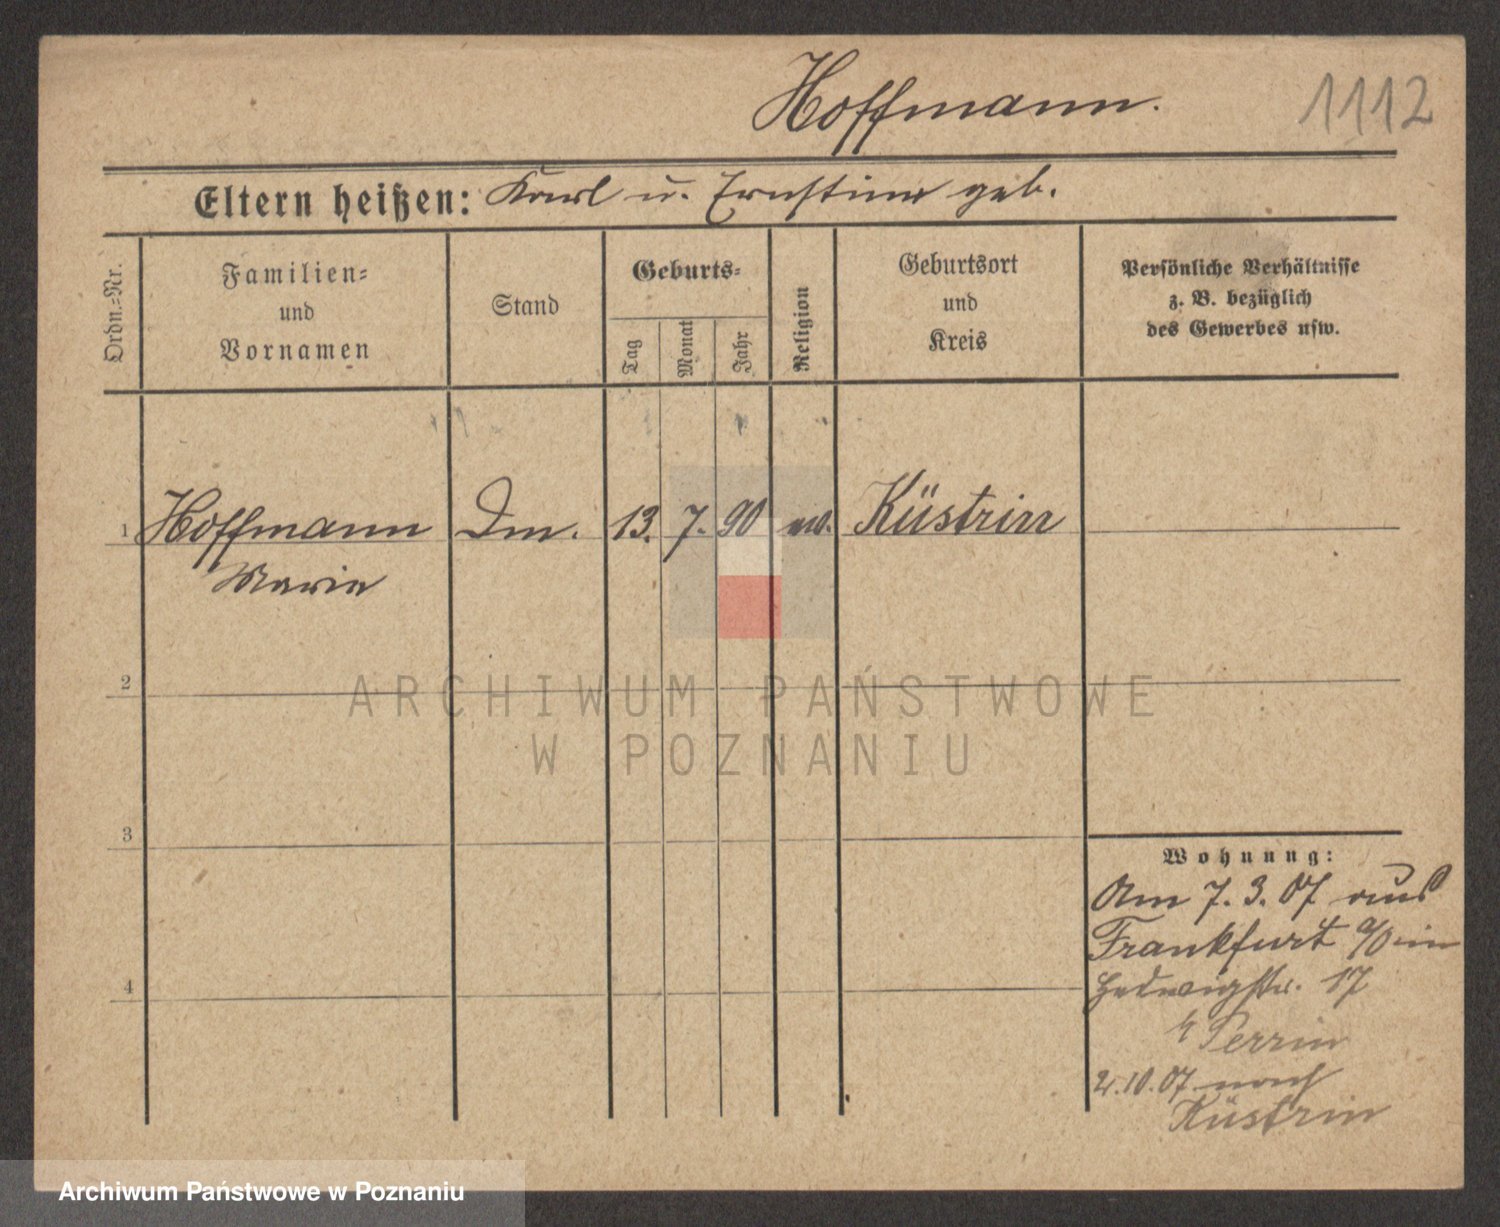 Hoffmann.
1112
Eltern heißen: Karl u. Ernstine geb.
Ordn.=Nr.
Familien=
und
Vornamen
Stand
Geburts=
Tag
Monat
Jahr
Religion
Geburtsort
und
Kreis
Persönliche Verhältnisse
z. B. bezüglich
des Gewerbes usw.
1 Hoffmann Dm. 13. 7. 90 ev. Küstrin
Marie
2
ARCHIWUM PAŃSTWOWE
W POZNANIU
3
Wohnung:
Am 7. 3. 07 aus
Frankfurt a/O in
Hedwigstr. 17
Perrin
2.10.07 nach
Küstrin
4
Archiwum Państwowe w Poznaniu